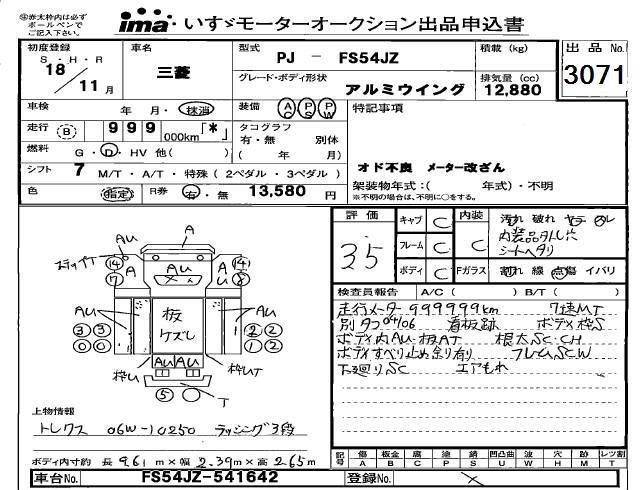 ㊟赤太枠内は必ず
ボールペンで
ご記入下さい。
ima・いすゞモーターオークション出品申込書
初度登録
S・H・R
18 11 月
車名
三菱
型式
PJ - FS54JZ
グレード・ボディ形状
アルミウイング
積載 (kg)
排気量 (cc)
12,880
出品No.
3071
車検 年 月・抹消
装備 AC PS PW
特記事項
走行 B 999 ,000km「*」
タコグラフ
有・無 別体
( 年 月)
燃料 G・D・HV 他( )
オド不良 メーター改ざん
シフト 7 M/T・A/T・特殊(2ペダル・3ペダル)
架装物年式:( 年式)・不明
※不明の場合は、不明に○をする。
色 指定 R券 有・無 13,580 円
評価
35
キャブ C
フレーム C
ボディ C
内装 C
Fガラス
汚れ 破れ ヤニ
内装品外し穴
シートヘタリ
割れ 線 点傷 イバリ
検査員報告 A/C( ) B/T( )
走行メーター999999km 7速MT
別タコ04106 看板跡 ボディ枠S
ボディ内AU・板AT 根太SC・CH
ボディすべり止め余り有り フレームSCW
下廻りSC エアもれ
AU A
ステップT
14 A AU 14 A
7 8
AU 板 AU
ケズレ
3 3 2 2
0 0 1 2
AU AU
枠U 枠UT
5 T
上物情報
トレクス 06W-10250 ラッシング3段
ボディ内寸約 長 9.61 m×幅 2.39 m×高 2.65 m
記号 傷 A 板金 B 腐 C 塗 P 錆 S 凹凸曲 U 波 W 穴 H 跡 M レツ割 T
車台No. FS54JZ-541642
登録No.